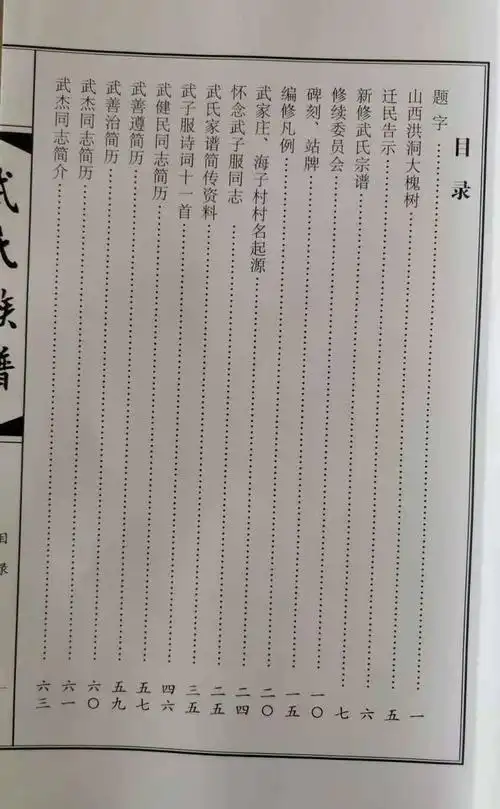 目录
题字……一
山西洪洞大槐树……五
迁民告示……六
新修武氏宗谱……七
修续委员会……一〇
碑刻、站牌……一五
编修凡例……二〇
武家庄、海子村村名起源……二四
怀念武子服同志……二五
武氏家谱简传资料……三五
武子服诗词十一首……四六
武健民同志简历……五七
武善遵简历……五九
武善治简历……六〇
武杰同志简历……六一
武杰同志简介……六三
武氏族谱
目录
一